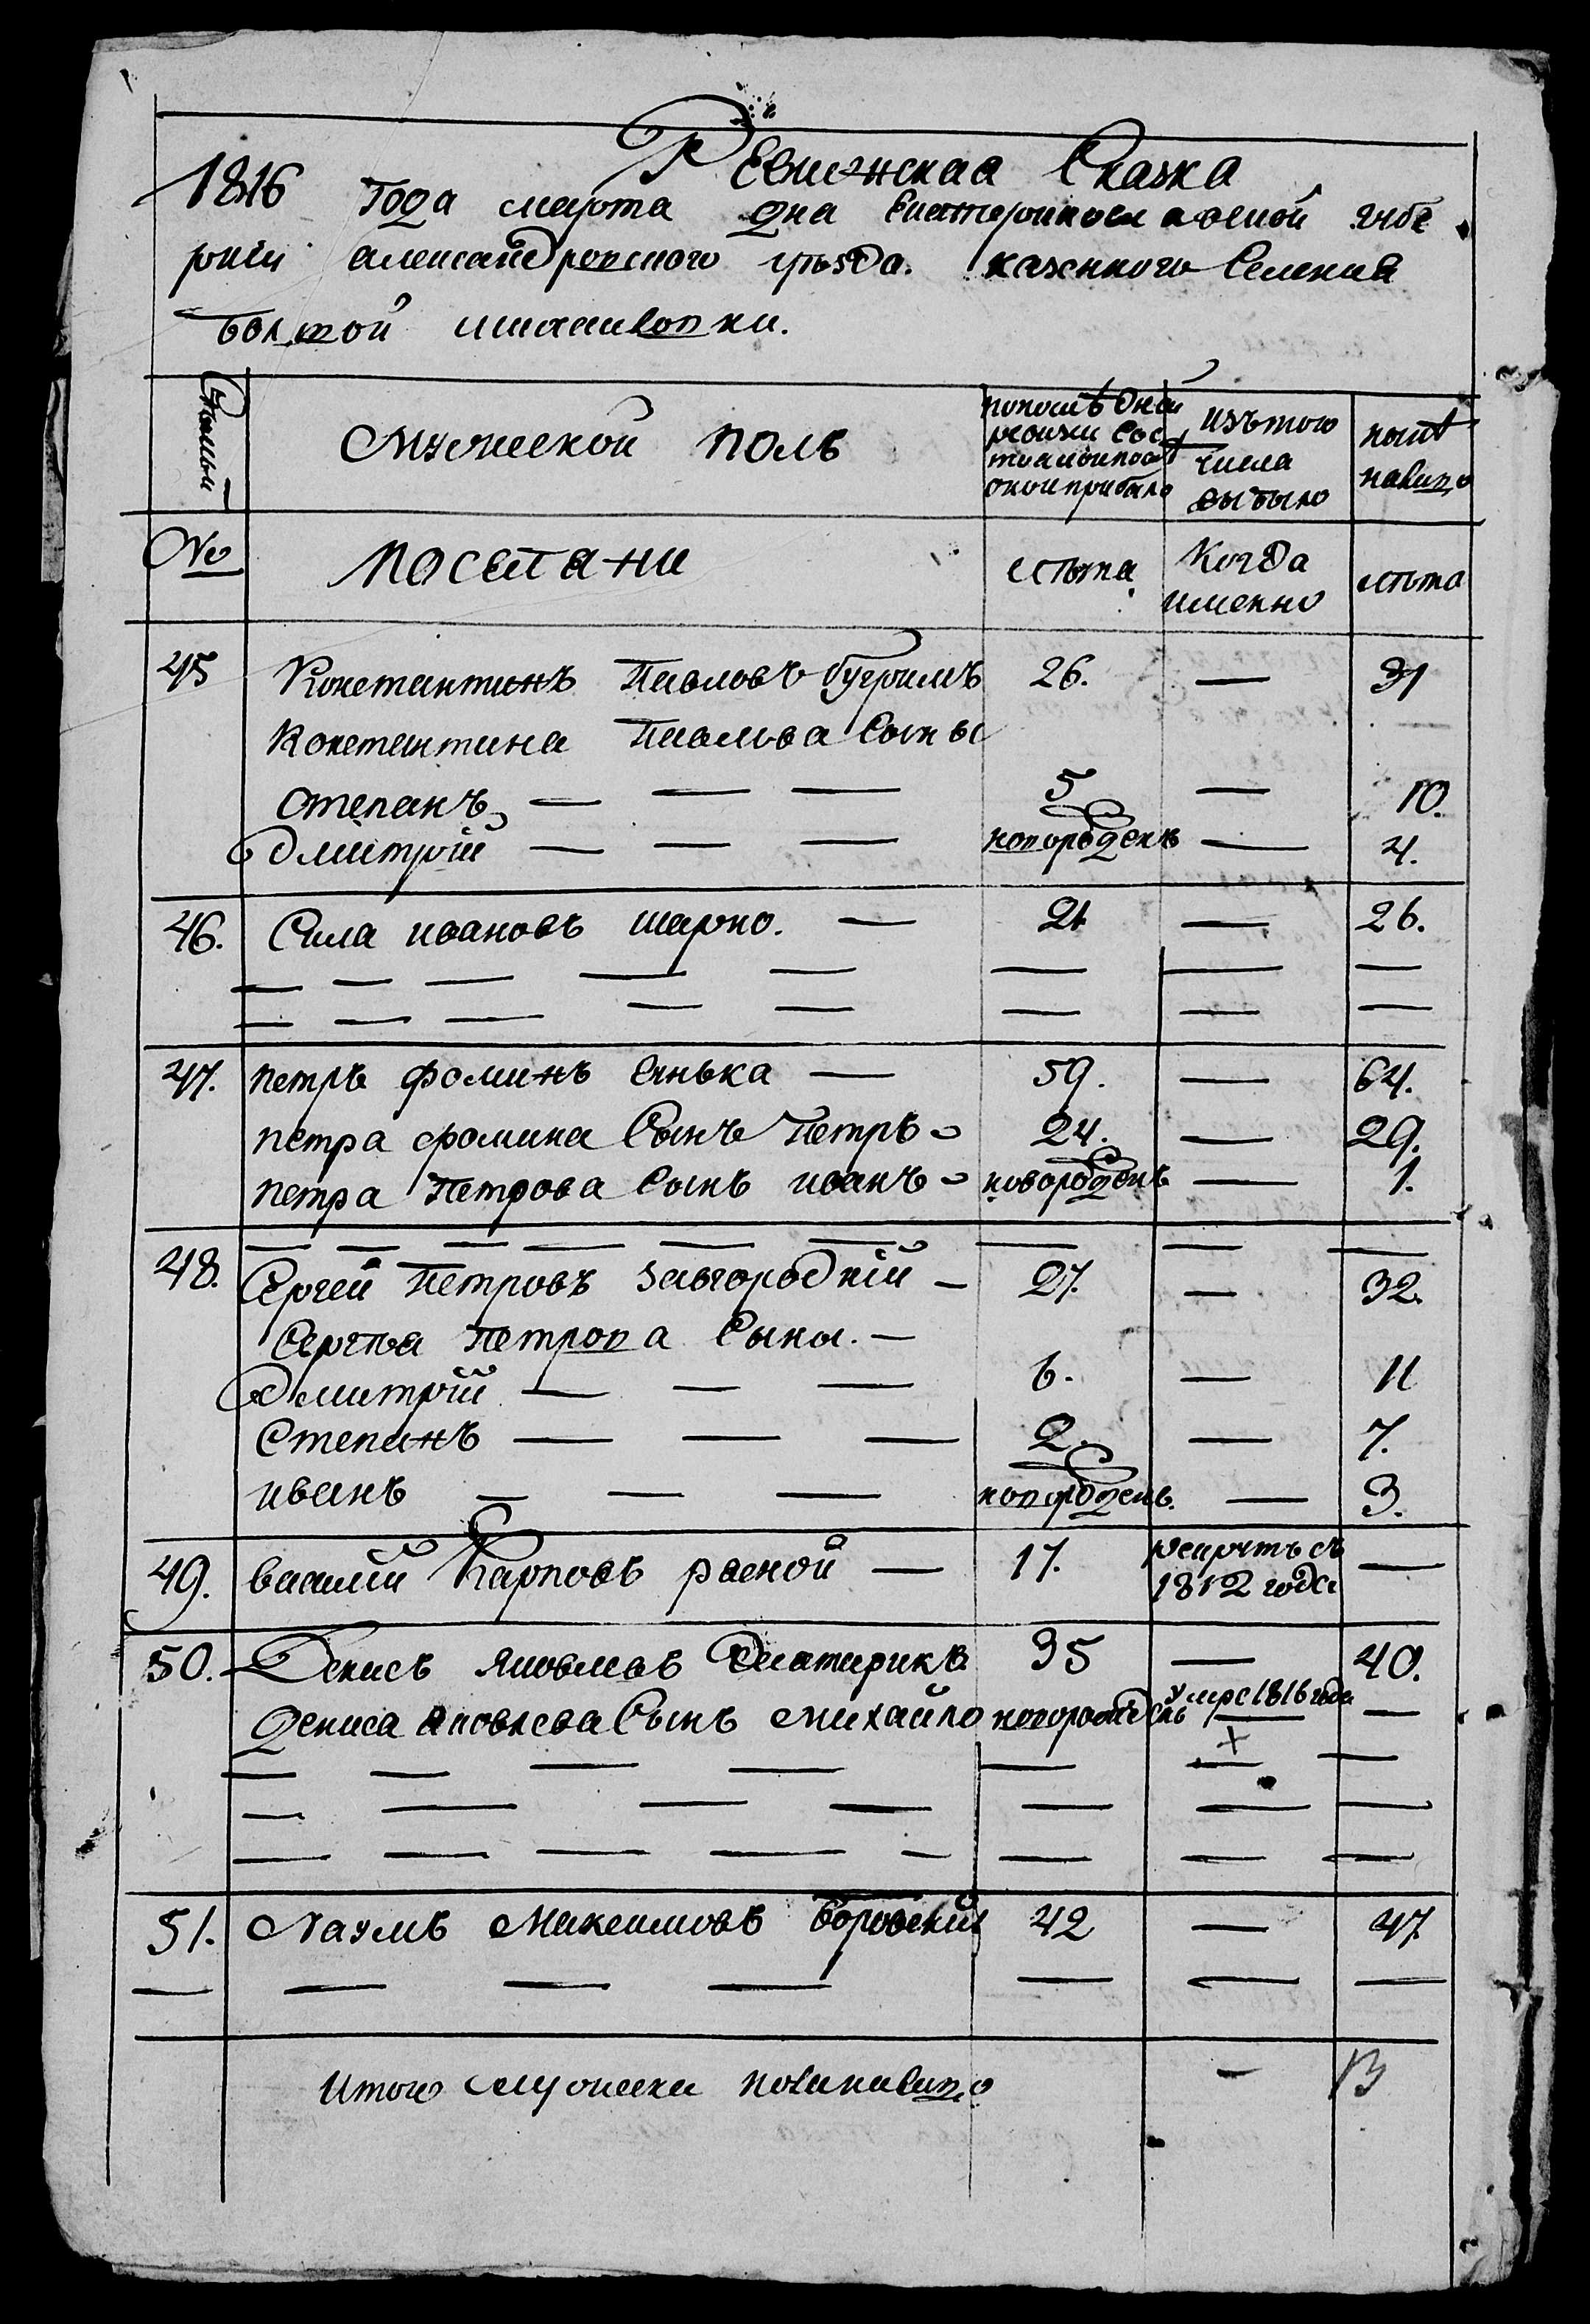 Ревижская Сказка
1816 года марта дня Екатеринославской губе
рнiи александровского уѣзда. казенного Селения
болшой михайловки.
Семьи
Мужеской полъ
попослѣдней
ревизiи сос
тояло и после
оной прибыло
изътого
числа
выбыло
нынѣ
налицо
№
посѣляни
лѣта
Когда
именно
лѣта
45 Констинтинъ Павловъ бугримъ 26. — 31
Констинтина Павлова Сыны
Степанъ — — — 5 — 10.
Дмитрiй — — — новорожденъ — 4.
46. Сила ивановъ шарко. — 21 — 26.
47. петръ фоминъ сенька — 59. — 64.
петра фомина Сынъ Петръ 24. — 29.
петра Петрова Сынъ иванъ новорожденъ — 1.
48. Сергей Петровъ завгороднiй — 27. — 32.
Сергѣя Петрова Сыны. —
Дмитрiй — — — 6. — 11
Степанъ — — — 2. — 7.
иванъ — — — новорожденъ. — 3.
49. василiй Карповъ расной — 17. рекрутъ съ
1812 года —
50. Денисъ яковлевъ 35 — 40.
Дениса яковлева Сынъ михайло новорожденъ умре 1816 года —
+
51. Наумъ Максимовъ боровский 42 — 47
Итого мужеска пола налицо — 13